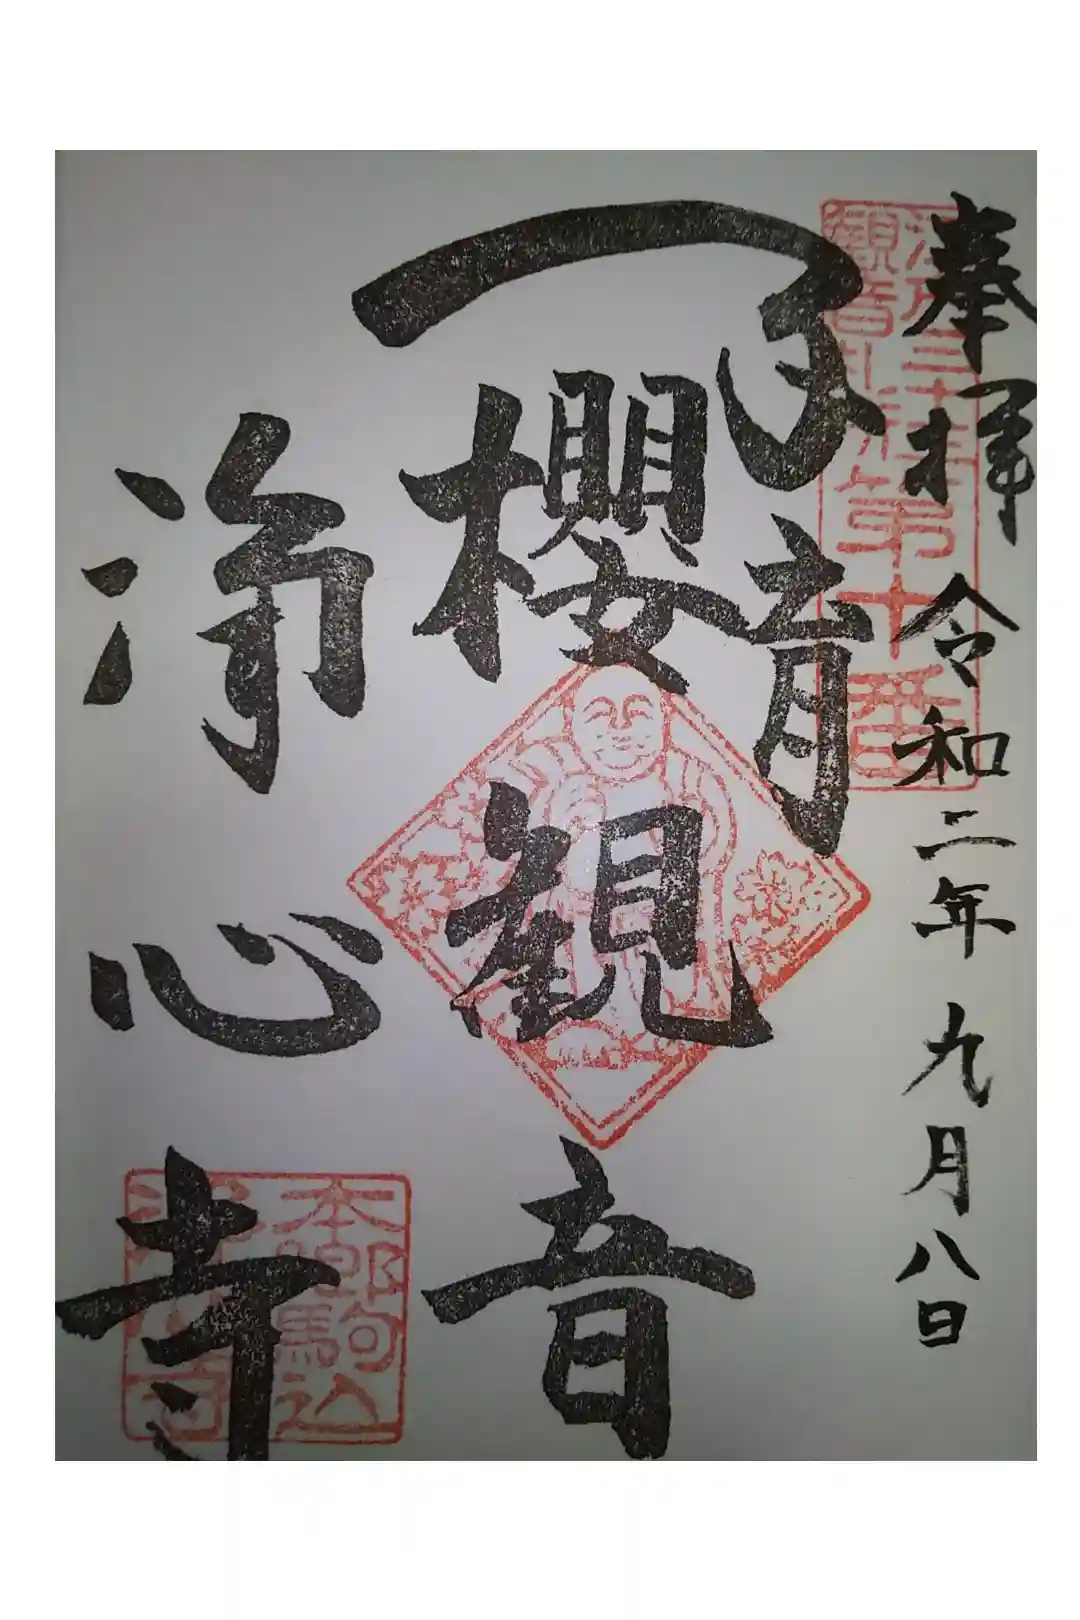 奉拝 令和二年九月八日
江戸三十三ヶ所
観音札所第十番
子育
櫻観音
本郷駒込
浄心寺